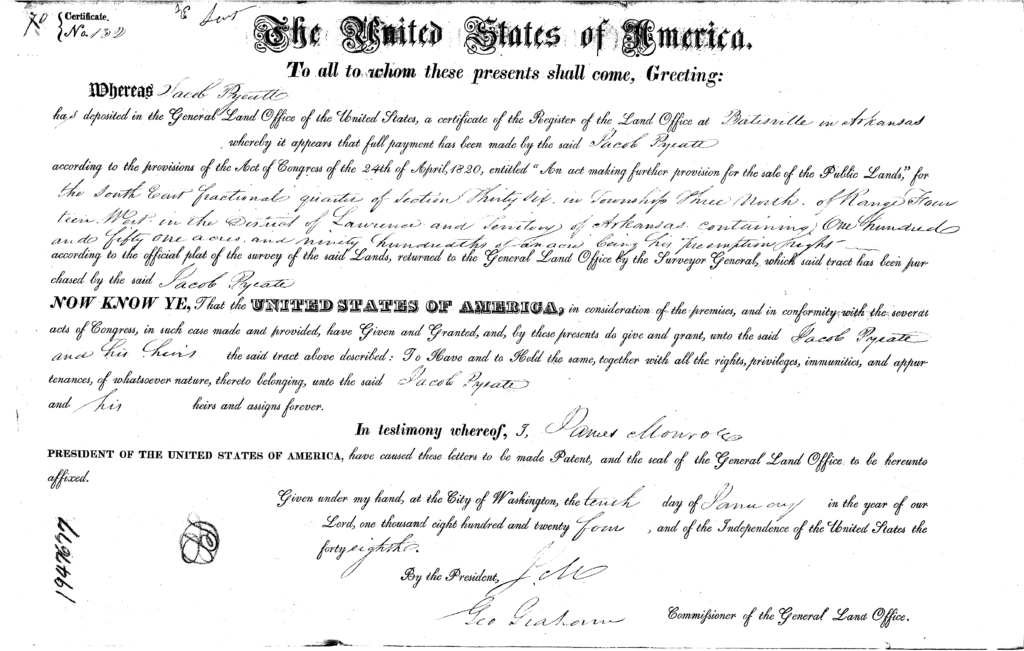 Certificate.
No. 132
The United States of America.
To all to whom these presents shall come, Greeting:
Whereas Jacob Pyeatt
has deposited in the General Land Office of the United States, a certificate of the Register of the Land Office at Batesville in Arkansas
whereby it appears that full payment has been made by the said Jacob Pyeatt
according to the provisions of the Act of Congress of the 24th of April, 1820, entitled "An act making further provision for the sale of the Public Lands," for
the South East fractional quarter of Section Thirty Six. in Township Three North. of Range Four
teen. West. in the District of Lawrence and Territory of Arkansas. containing. One hundred
and fifty one acres. and ninety hundredths of an acre being his preemption right
according to the official plat of the survey of the said Lands, returned to the General Land Office by the Surveyor General, which said tract has been pur-
chased by the said Jacob Pyeatt
NOW KNOW YE, That the UNITED STATES OF AMERICA, in consideration of the premises, and in conformity with the several
acts of Congress, in such case made and provided, have Given and Granted, and, by these presents do give and grant, unto the said Jacob Pyeatt
and his heirs the said tract above described: To Have and to Hold the same, together with all the rights, privileges, immunities, and appur-
tenances, of whatsoever nature, thereto belonging, unto the said Jacob Pyeatt
and his heirs and assigns forever.
In testimony whereof, I, James Monroe
PRESIDENT OF THE UNITED STATES OF AMERICA, have caused these letters to be made Patent, and the seal of the General Land Office to be hereunto
affixed.
Given under my hand, at the City of Washington, the tenth day of January in the year of our
Lord, one thousand eight hundred and twenty four, and of the Independence of the United States the
forty eighth.
By the President, J. M
Geo Graham Commissioner of the General Land Office.